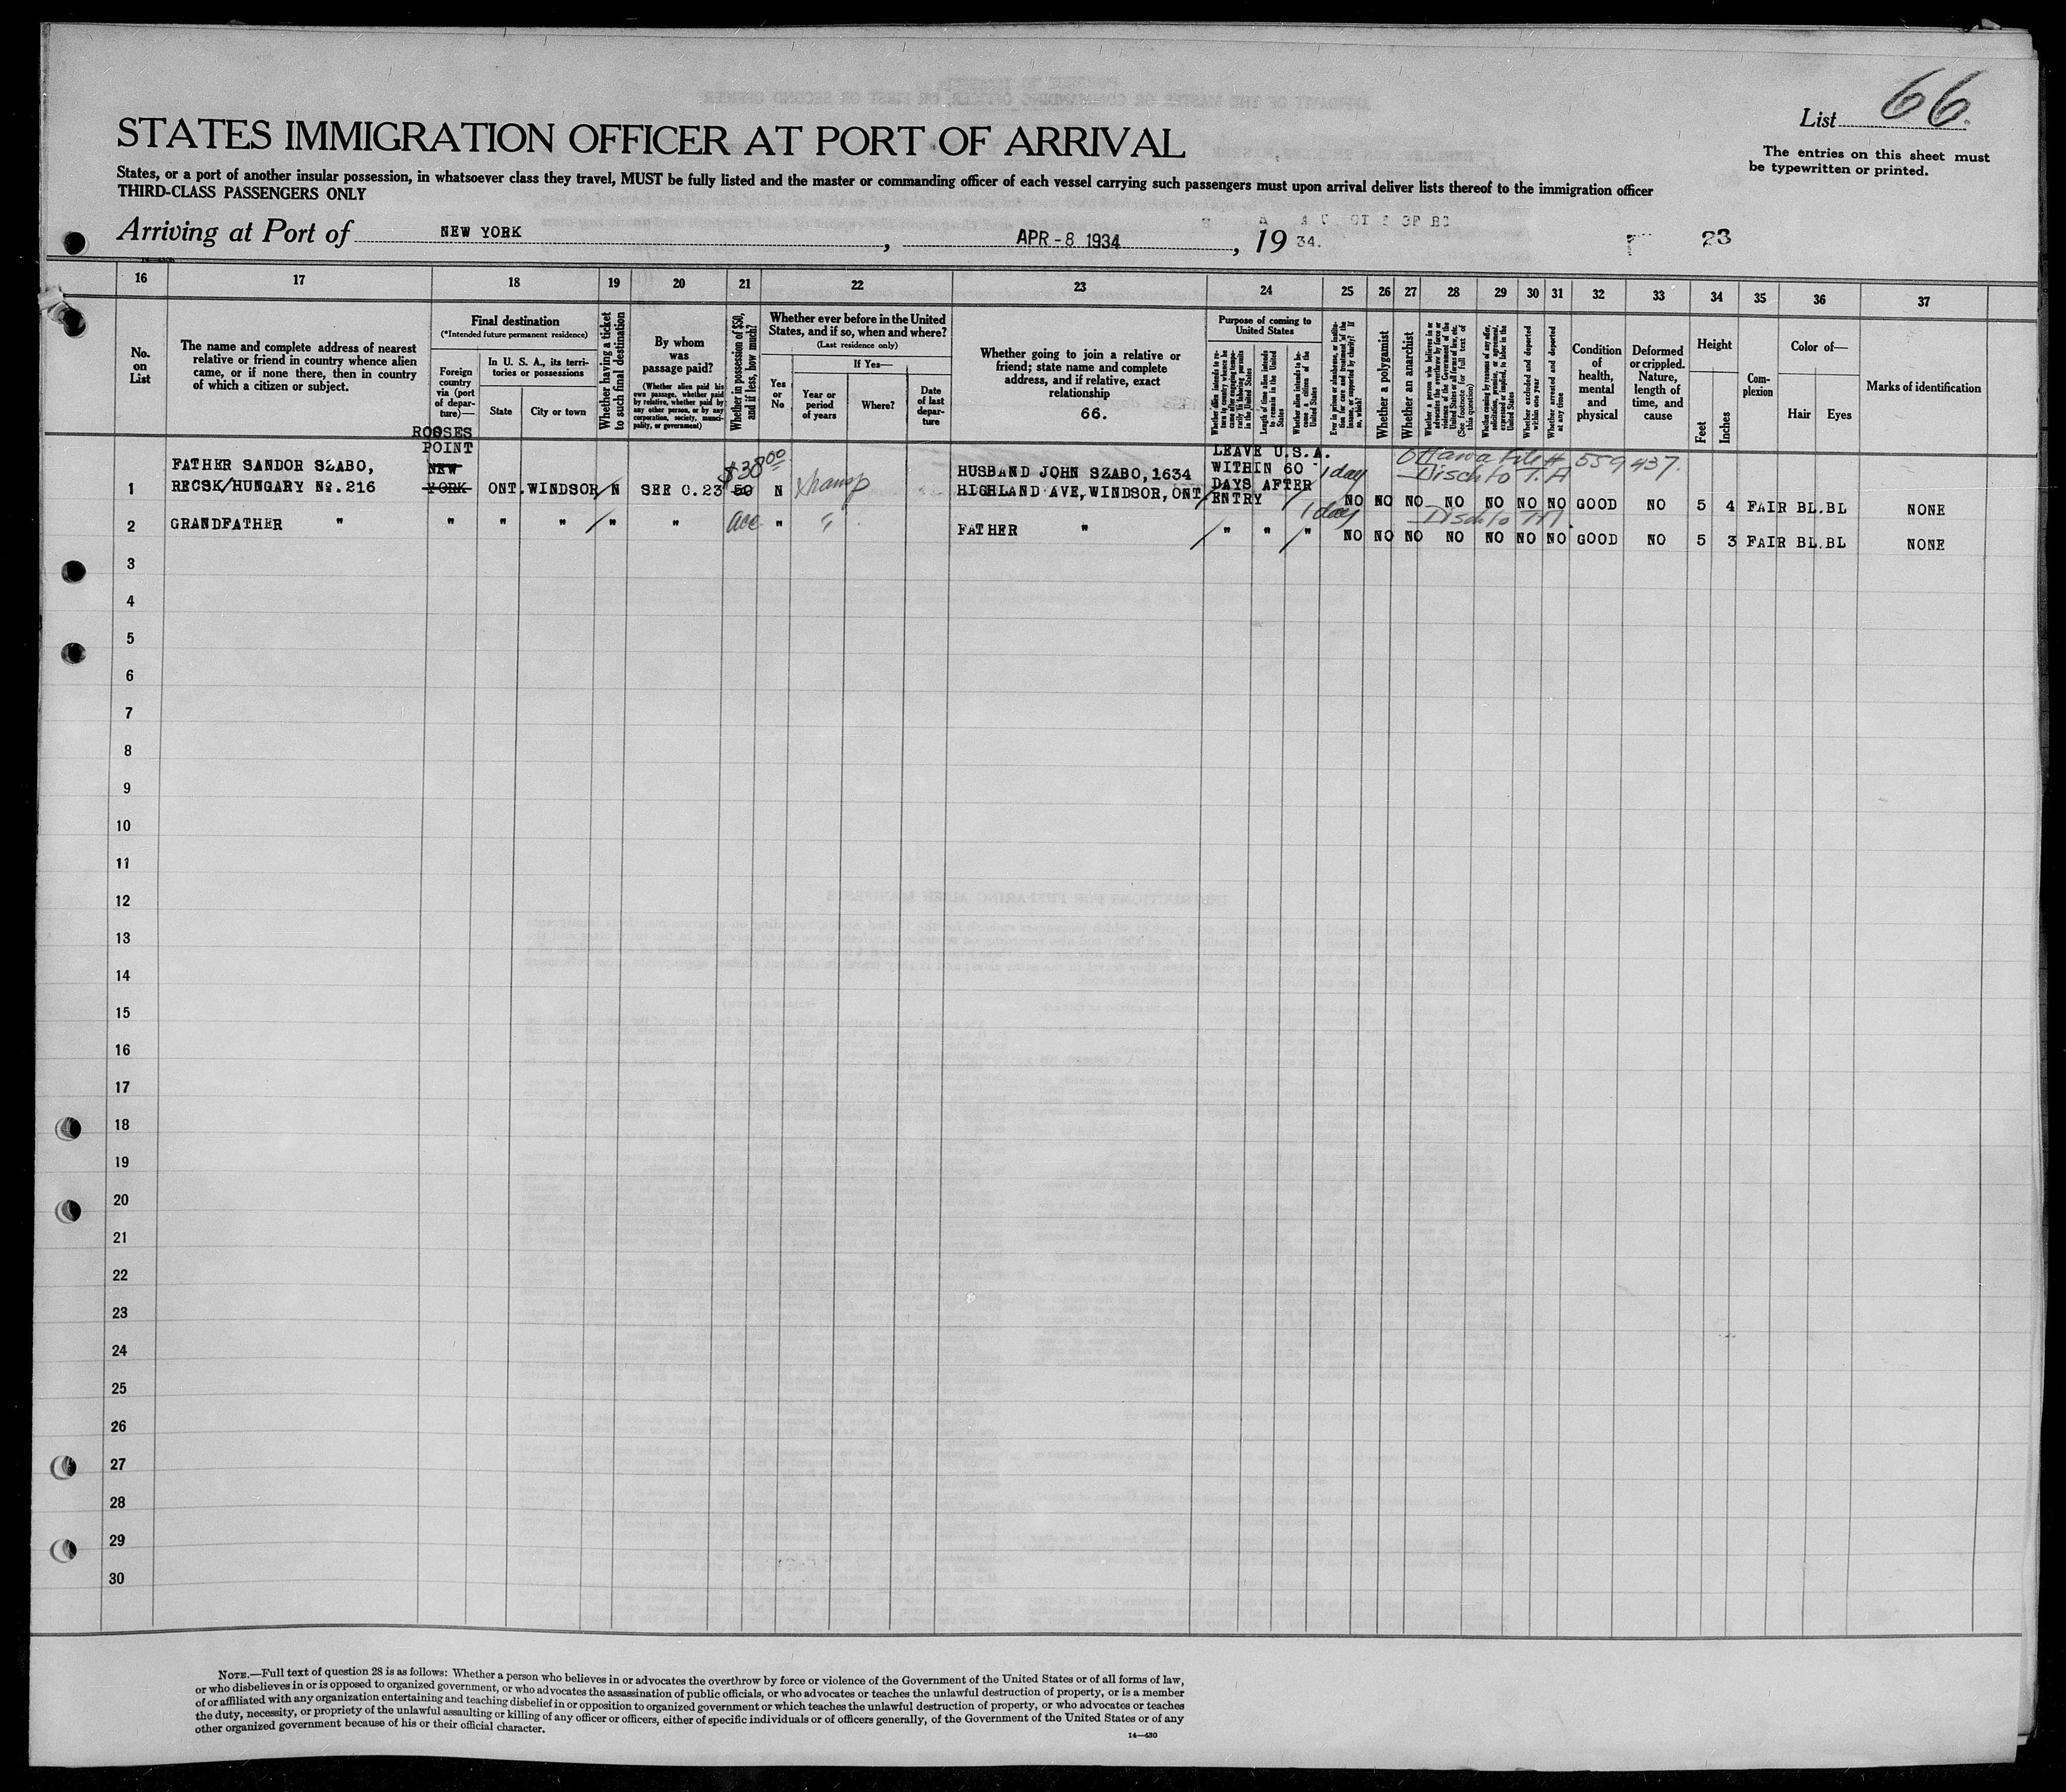 List 66
STATES IMMIGRATION OFFICER AT PORT OF ARRIVAL
The entries on this sheet must
be typewritten or printed.
States, or a port of another insular possession, in whatsoever class they travel, MUST be fully listed and the master or commanding officer of each vessel carrying such passengers must upon arrival deliver lists thereof to the immigration officer
THIRD-CLASS PASSENGERS ONLY
Arriving at Port of NEW YORK, APR - 8 1934, 19 34. 23
16 17 18 19 20 21 22 23 24 25 26 27 28 29 30 31 32 33 34 35 36 37
No.
on
List
The name and complete address of nearest
relative or friend in country whence alien
came, or if none there, then in country
of which a citizen or subject.
Final destination
(*Intended future permanent residence)
Foreign
country
via (port
of depar-
ture)—
In U. S. A., its terri-
tories or possessions
State
City or town
Whether having a ticket
to such final destination
By whom
was
passage paid?
(Whether alien paid his
own passage, whether paid
by relative, whether paid by
any other person, or by any
corporation, society, munici-
pality, or government)
Whether in possession of $50,
and if less, how much?
Whether ever before in the United
States, and if so, when and where?
(Last residence only)
Yes
or
No
If Yes—
Year or
period
of years
Where?
Date
of last
depar-
ture
Whether going to join a relative or
friend; state name and complete
address, and if relative, exact
relationship
66.
Purpose of coming to
United States
Length of time alien intends
to remain in the United
States
Whether alien intends to be-
come a citizen of the
United States
Whether a polygamist
Whether an anarchist
Whether excluded and deported
within one year
Whether arrested and deported
at any time
Condition
of
health,
mental
and
physical
Deformed
or crippled.
Nature,
length of
time, and
cause
Height
Feet
Inches
Com-
plexion
Color of—
Hair
Eyes
Marks of identification
ROSSES
POINT
1 FATHER SANDOR SZABO,
RECSK/HUNGARY No. 216
NEW
YORK
ONT. WINDSOR N SEE C.23 50 $38 00 N
HUSBAND JOHN SZABO, 1634
HIGHLAND AVE, WINDSOR, ONT
LEAVE U.S.A.
WITHIN 60
DAYS AFTER
ENTRY
1 day
Ottawa File # 559437.
Disch to T.A
NO NO NO NO NO NO NO GOOD NO 5 4 FAIR BL. BL NONE
2 GRANDFATHER " " " " / " " acc " " FATHER " " " " 1 day
NO NO NO NO NO NO NO GOOD NO 5 3 FAIR BL. BL NONE
3
4
5
6
7
8
9
10
11
12
13
14
15
16
17
18
19
20
21
22
23
24
25
26
27
28
29
30
NOTE.—Full text of question 28 is as follows: Whether a person who believes in or advocates the overthrow by force or violence of the Government of the United States or of all forms of law,
or who disbelieves in or is opposed to organized government, or who advocates the assassination of public officials, or who advocates or teaches the unlawful destruction of property, or is a member
of or affiliated with any organization entertaining and teaching disbelief in or opposition to organized government or which teaches the unlawful destruction of property, or who advocates or teaches
the duty, necessity, or propriety of the unlawful assaulting or killing of any officer or officers, either of specific individuals or of officers generally, of the Government of the United States or of any
other organized government because of his or their official character.
14—430